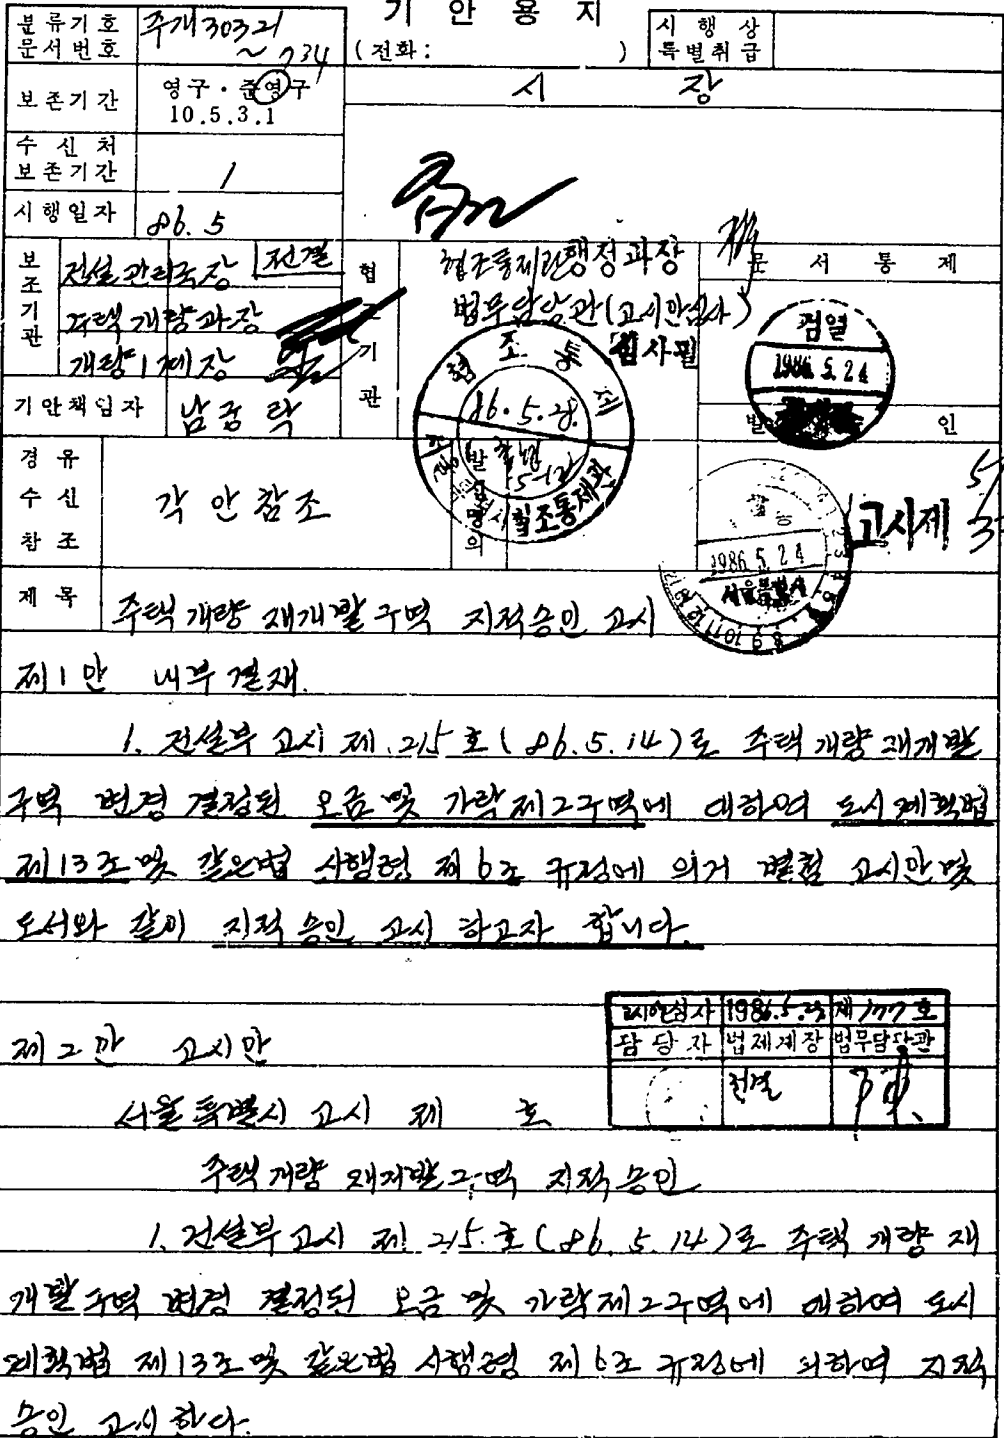 기 안 용 지
분류기호 문서번호 주개30321 ~ 734
(전화: )
시 행 상 특별취급
보존기간 영구 · 준영구 10.5.3.1
시 장
수 신 처 보존기간 1
시행일자 86. 5
보조기관
건설관리국장 전결
주택개량과장
개량1계장
기안책임자 남궁락
협조기관
협조통제관행정과장
법무담당관(고시안심사)
심사필
문 서 통 제
검열
1986. 5. 24
발 인
협조통제
86. 5. 28.
협조통제과
발신명의
경유
수신
참조
각 안 참조
1986. 5. 24
서울특별시
고시제
제 목 주택개량 재개발구역 지적승인 고시
제1안 내부결재.
1. 건설부 고시 제 215호(86. 5. 14)로 주택개량 재개발
구역 변경 결정된 오금 및 가락제2구역에 대하여 도시계획법
제13조 및 같은법 시행령 제6조 규정에 의거 별첨 고시안 및
도서와 같이 지적승인 고시 하고자 합니다.
고시안심사 1986. 5. 제177호
담당자 법제계장 법무담당관
전결
제2안 고시안
서울특별시 고시 제 호
주택개량 재개발구역 지적승인
1. 건설부 고시 제 215.호(86. 5. 14)로 주택개량 재
개발구역 변경 결정된 오금 및 가락제2구역에 대하여 도시
계획법 제13조 및 같은법 시행령 제6조 규정에 의하여 지적
승인 고시한다.